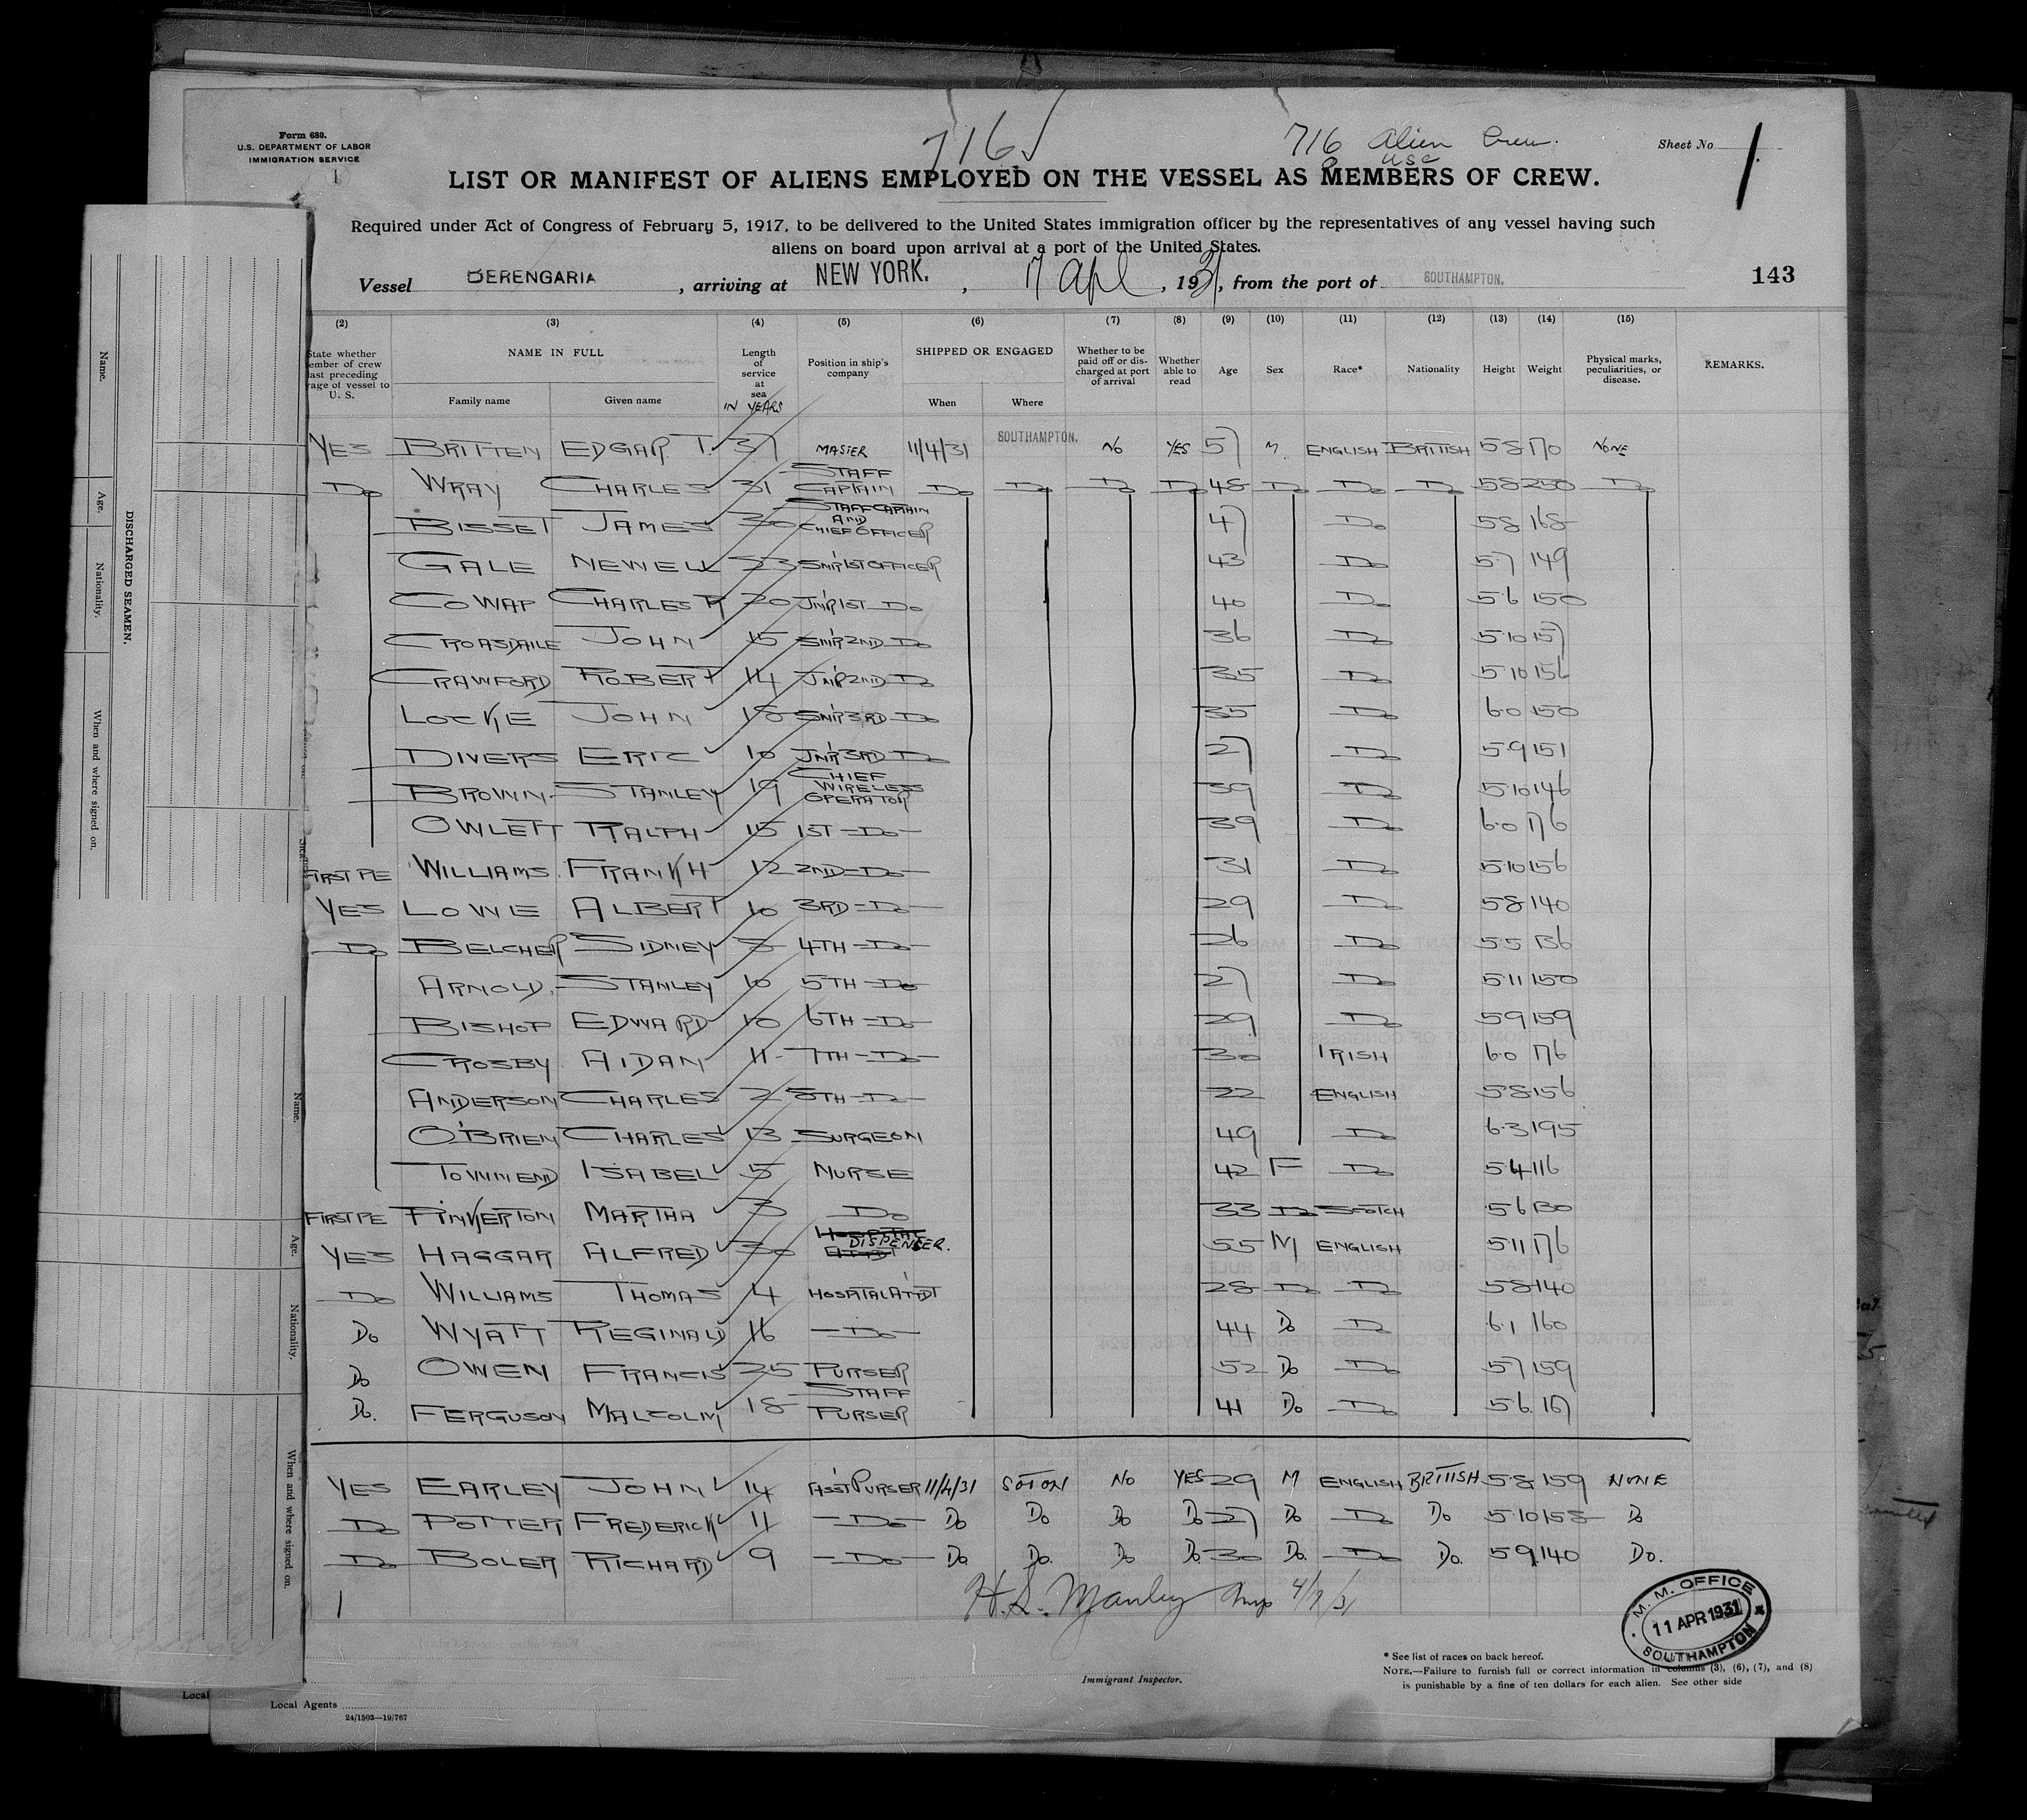 716
716 Alien Crew.
8 USC
Form 680.
U.S. DEPARTMENT OF LABOR
IMMIGRATION SERVICE
1
Sheet No 1.
LIST OR MANIFEST OF ALIENS EMPLOYED ON THE VESSEL AS MEMBERS OF CREW.
Required under Act of Congress of February 5, 1917, to be delivered to the United States immigration officer by the representatives of any vessel having such
aliens on board upon arrival at a port of the United States.
Vessel BERENGARIA, arriving at NEW YORK., 17 Apl, 1931, from the port of SOUTHAMPTON. 143
(2) (3) (4) (5) (6) (7) (8) (9) (10) (11) (12) (13) (14) (15)
State whether member of crew last preceding voyage of vessel to U. S. NAME IN FULL Family name Given name Length of service at sea IN YEARS Position in ship's company SHIPPED OR ENGAGED When Where Whether to be paid off or discharged at port of arrival Whether able to read Age Sex Race* Nationality Height Weight Physical marks, peculiarities, or disease. REMARKS.
YES BRITTEN EDGAR T. 37 MASTER 11/4/31 SOUTHAMPTON. NO YES 57 M. ENGLISH BRITISH 5 8 170 NONE
Do WRAY CHARLES 31 STAFF CAPTAIN Do Do Do Do 48 Do Do Do 5 8 250 Do
BISSET JAMES 30 STAFF CAPTAIN AND CHIEF OFFICER 47 Do 5 8 168
GALE NEWELL 23 SNR 1ST OFFICER 43 Do 5.7 149
COWAP CHARLES R 20 JNR 1ST Do 40 Do 5.6 150
CROASDAILE JOHN 15 SNR 2ND Do 36 Do 5.10 157
CRAWFORD ROBERT 14 JNR 2ND Do 35 Do 5 10 156
LOCKE JOHN 18 SNR 3RD Do 35 Do 6.0 150
DIVERS ERIC 10 JNR 3RD Do 27 Do 5.9 151
BROWN STANLEY 19 CHIEF WIRELESS OPERATOR 39 Do 5.10 146
OWLETT RALPH 15 1ST Do 39 Do 6.0 176
FIRST PE WILLIAMS FRANK H 12 2ND Do 31 Do 5.10 156
YES LOWE ALBERT 10 3RD Do 29 Do 5 8 140
Do BELCHER SIDNEY 5 4TH Do 26 Do 5.5 136
ARNOLD STANLEY 10 5TH Do 27 Do 5.11 150
BISHOP EDWARD 10 6TH Do 29 Do 5 9 159
CROSBY AIDAN 11 7TH Do 30 IRISH 6.0 176
ANDERSON CHARLES 2 8TH Do 22 ENGLISH 5 8 156
O'BRIEN CHARLES 13 SURGEON 49 Do 6.3 195
TOWNEND ISABEL 5 NURSE 42 F Do 5.4 116
FIRST PE PINKERTON MARTHA 3 Do 33 Do SCOTCH 5 6 130
YES HAGGAR ALFRED 30 DISPENSER. 55 M ENGLISH 5 11 176
Do WILLIAMS THOMAS 4 HOSPITAL ATTDT 28 Do Do 5 8 140
Do WYATT REGINALD 16 Do 44 Do Do 6.1 160
Do OWEN FRANCIS 25 PURSER 52 Do Do 5 7 159
Do. FERGUSON MALCOLM 18 STAFF PURSER 41 Do Do 5.6. 167
YES EARLEY JOHN 14 ASST PURSER 11/4/31 SOTON NO YES 29 M ENGLISH BRITISH 5.8 159 NONE
Do POTTER FREDERICK 11 Do Do Do Do Do 27 Do Do Do 5.10 158 Do
Do BOLER RICHARD 9 Do Do. Do. Do Do. 30 Do. Do Do. 5 9 140 Do.
H. S. Manley Insp 4/7/31
M. M. OFFICE
11 APR 1931
SOUTHAMPTON
* See list of races on back hereof.
NOTE.—Failure to furnish full or correct information in columns (3), (6), (7), and (8)
is punishable by a fine of ten dollars for each alien. See other side
Immigrant Inspector.
Local
Local Agents
24/1503—19/767
DISCHARGED SEAMEN.
Name.
Age.
Nationality.
When and where signed on.
Name.
Age.
Nationality.
When and where signed on.